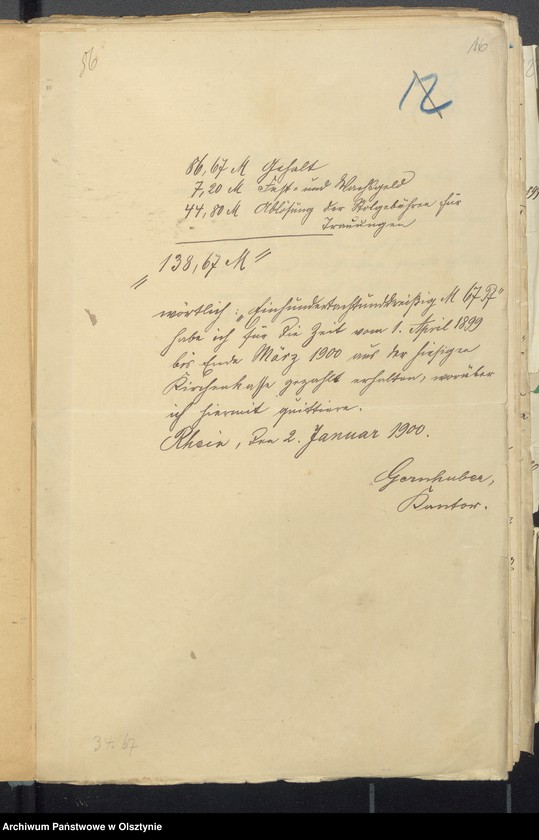 56
116
12
86,67 M Gehalt
7,20 M Fest- und Wachsgeld
44,80 M Ablösung der Stolgebühren für
Trauungen
"138,67 M"
wörtlich: „Einhundertachtunddreißig M 67 Pf"
habe ich für die Zeit vom 1. April 1899
bis Ende März 1900 aus der hiesigen
Kirchenkasse gezahlt erhalten, worüber
ich hiermit quittiere.
Rhein, den 2. Januar 1900.
Gernhuber,
Kantor.
Archiwum Państwowe w Olsztynie